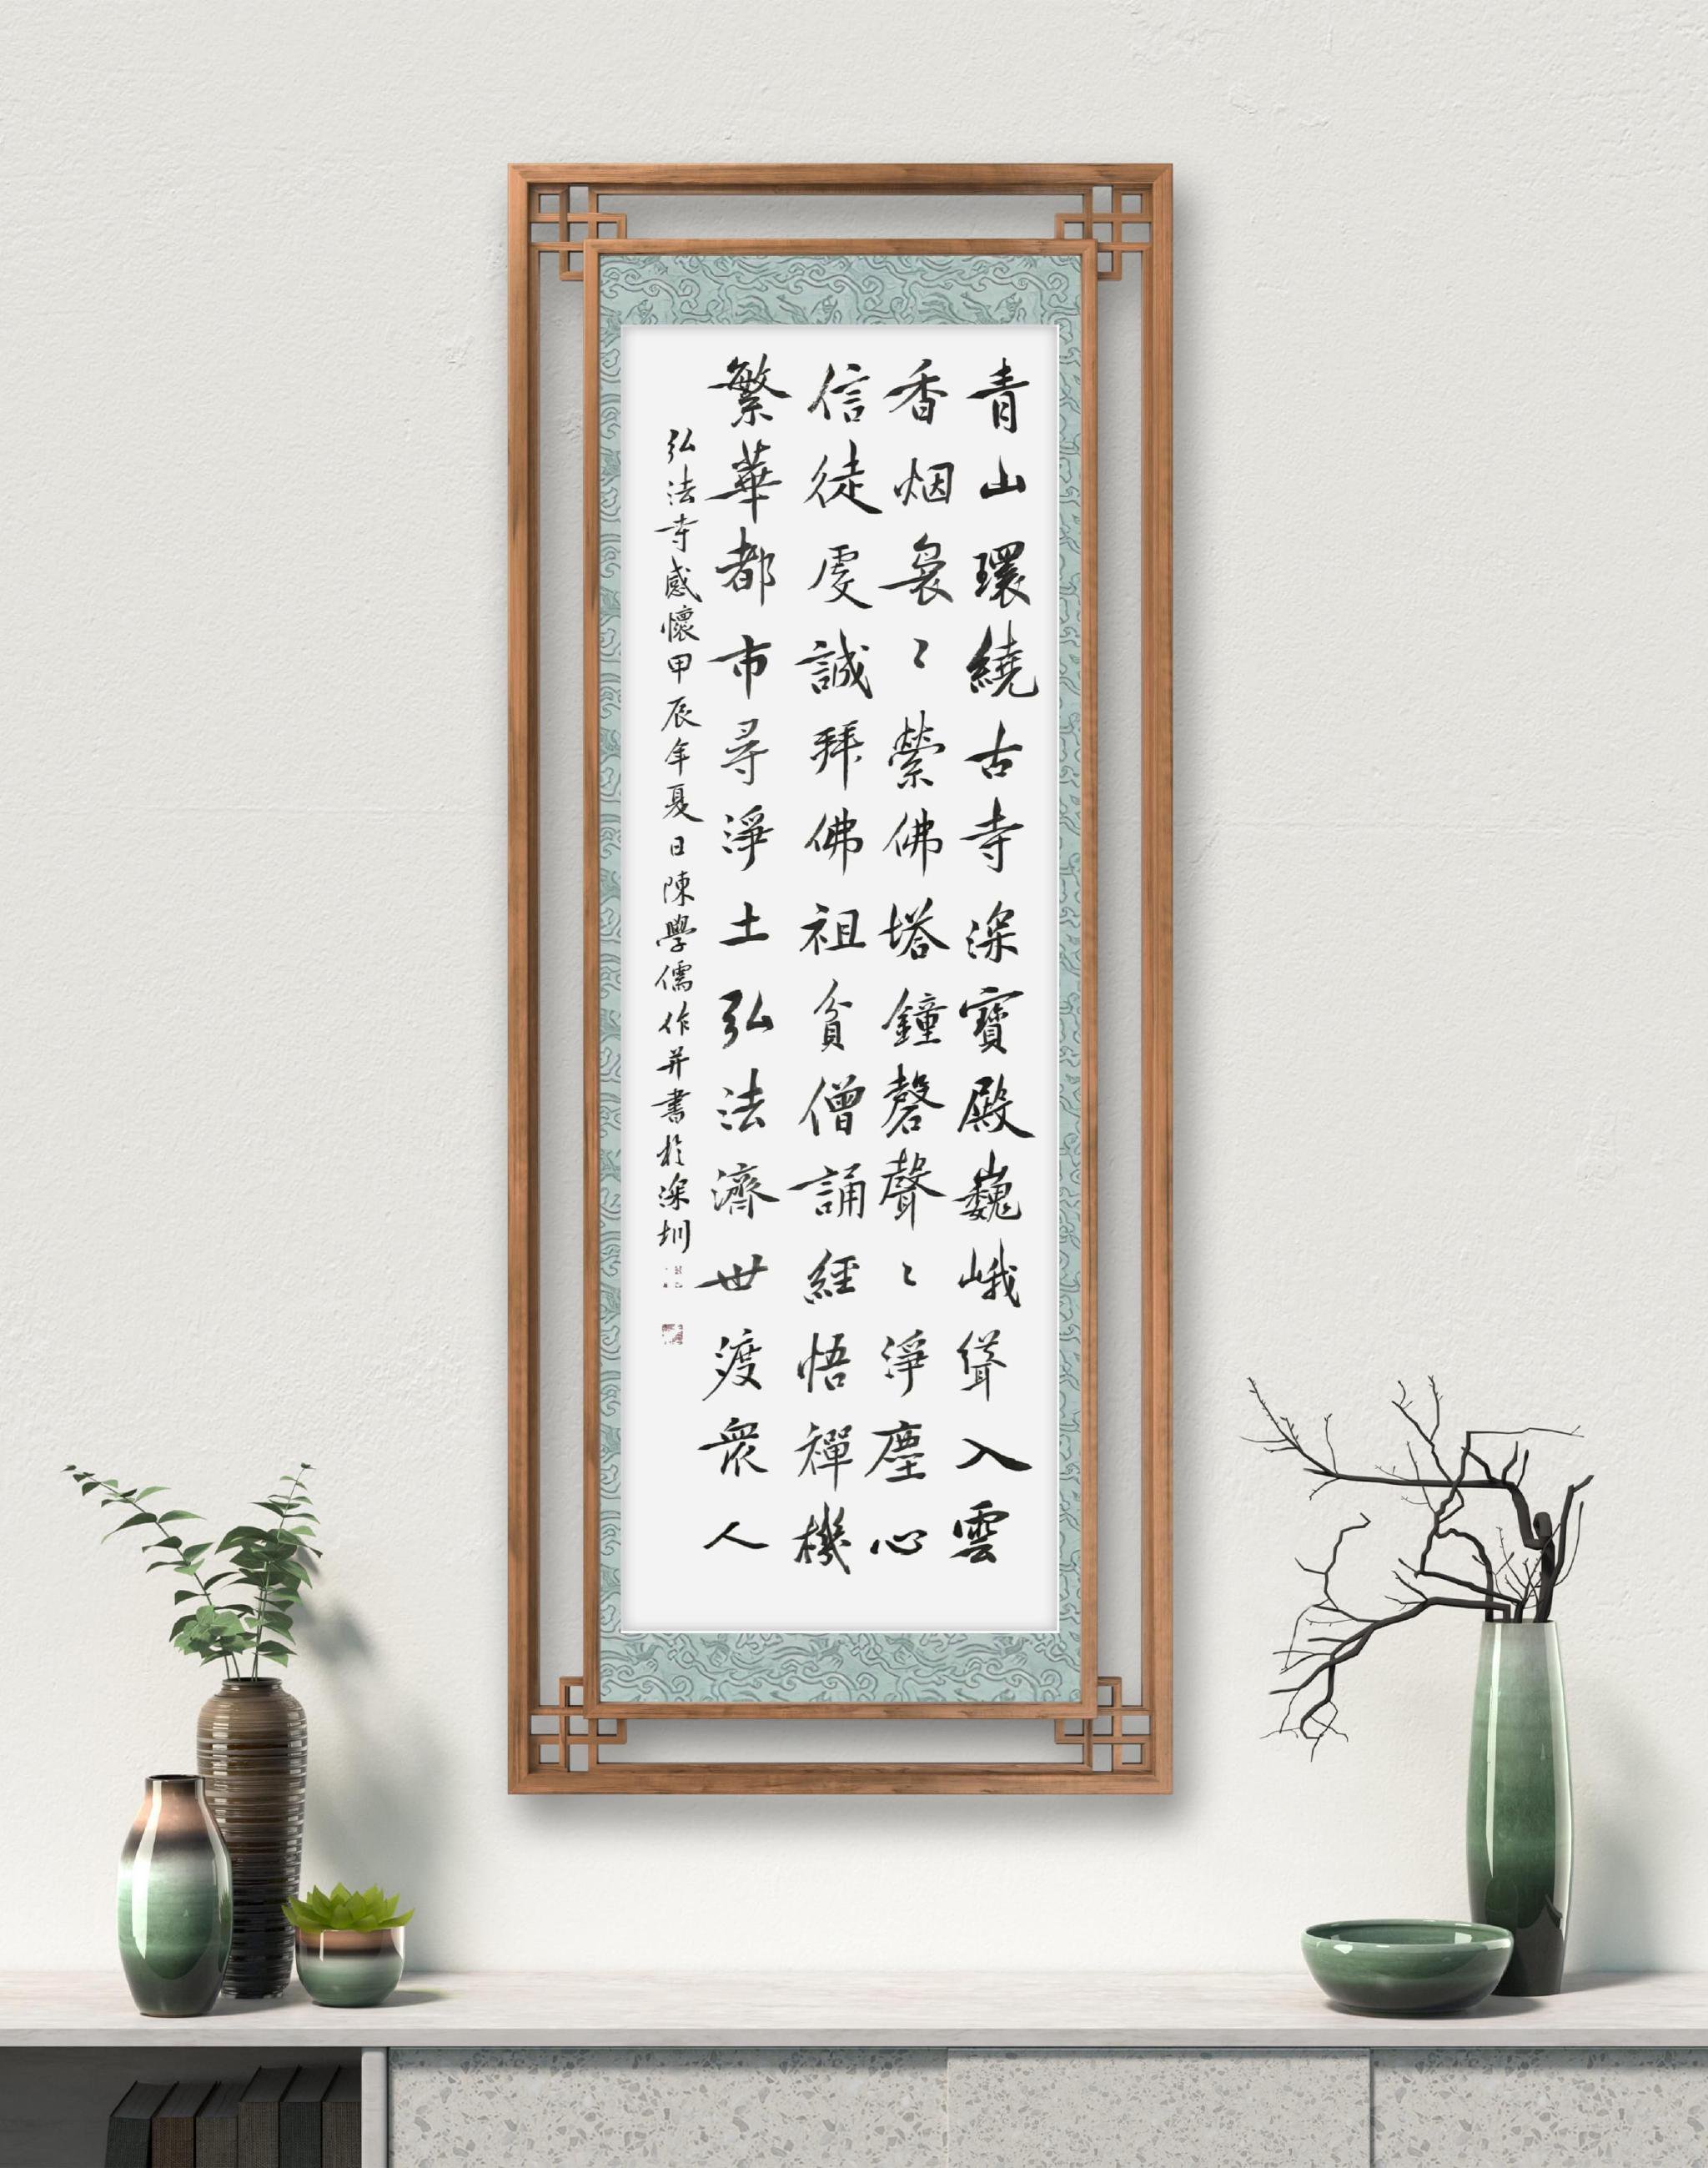 青山環繞古寺深寶殿巍峨聳入雲
香烟裊〻縈佛塔鐘磬聲〻淨塵心
信徒虔誠拜佛祖貧僧誦經悟禪機
繁華都市尋淨土弘法濟世渡衆人
弘法寺感懷甲辰年夏日陳學儒作并書於深圳